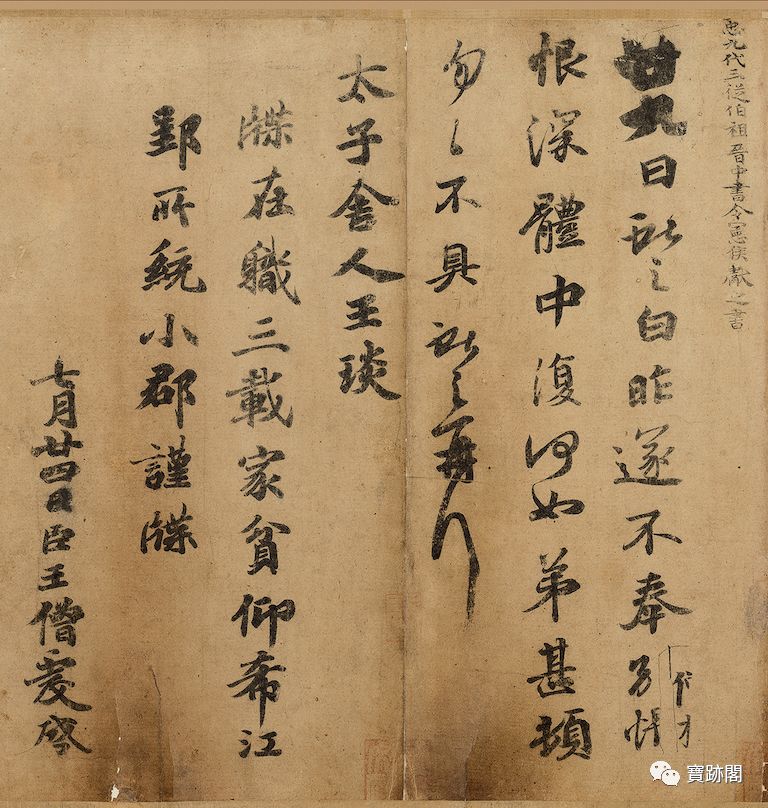 𢘑九代三從伯祖晉中書令憲侯獻之書
廿九日獻之白昨遂不奉別悵
恨深體中復何如弟甚頓
匆〻不具獻之再拜
太子舍人王琰
牒在職三載家貧仰希江
郢所統小郡謹牒
七月廿四日臣王僧虔啓
寶跡閣